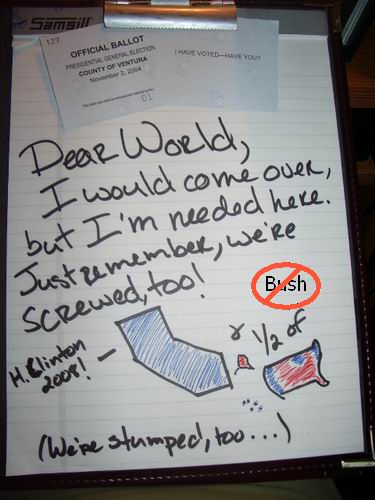 Samsill
127
OFFICIAL BALLOT
PRESIDENTIAL GENERAL ELECTION
COUNTY OF VENTURA
November 2, 2004
01
I HAVE VOTED—HAVE YOU?
Dear World,
I would come over,
but I'm needed here.
Just remember, we're
screwed, too!
Bush
H. Clinton
2008!
& 1/2 of
(We're stumped, too...)